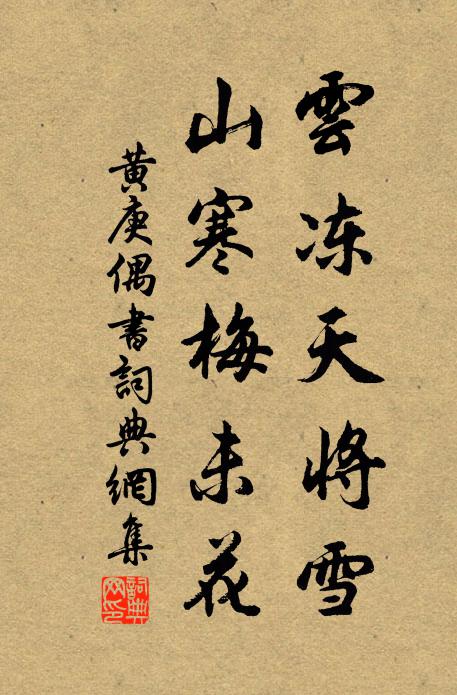 雲冻天将雪
山寒梅未花
黄庚偶書詞典網集
詞典網印